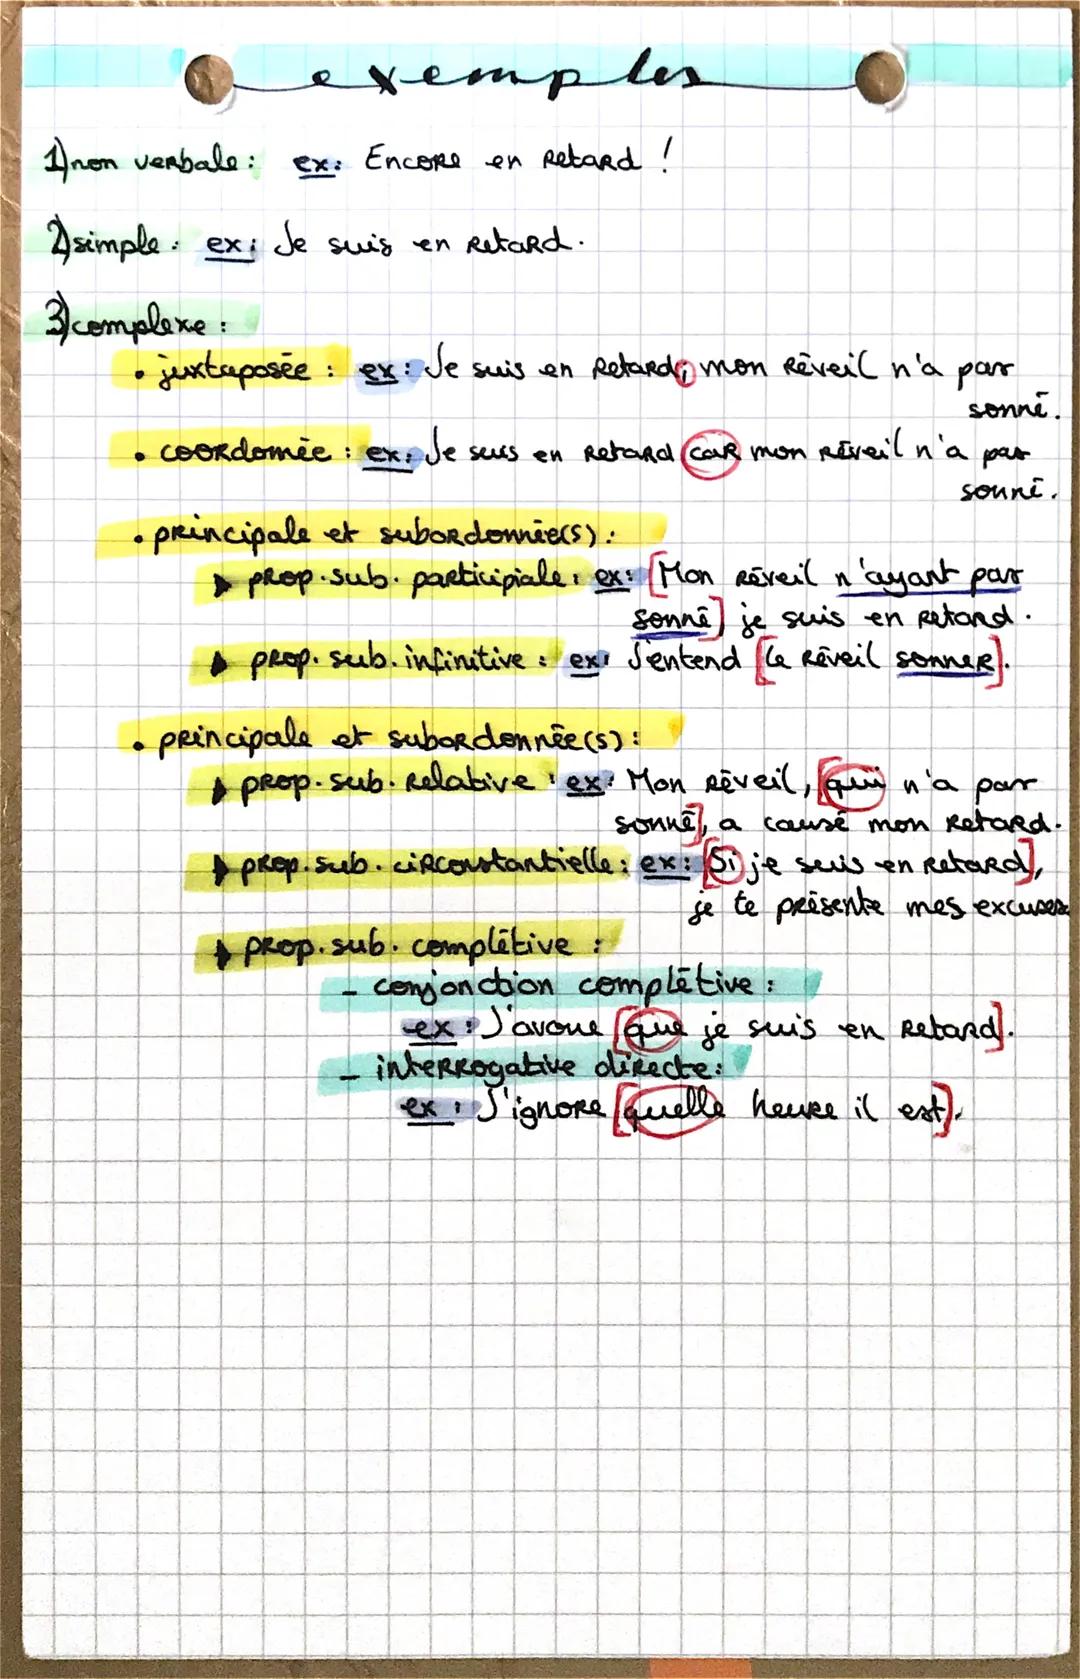 exemples
1) non verbale : ex: Encore en retard !
2) simple : ex: Je suis en retard.
3) complexe :
• juxtaposée : ex: Je suis en retard ; mon réveil n'a pas
sonné.
• coordonnée : ex: Je suis en retard car mon réveil n'a pas
sonné.
• principale et subordonnée(s) :
▶ prop. sub. participiale : ex: [Mon réveil n'ayant pas
sonné] je suis en retard.
▶ prop. sub. infinitive : ex: J'entend [le réveil sonner].
• principale et subordonnée(s) :
▶ prop. sub. relative : ex: Mon réveil, [qui n'a pas
sonné], a causé mon retard.
▶ prop. sub. circonstantielle : ex: [Si je suis en retard],
je te présente mes excuses
▶ prop. sub. complétive :
- conjonction complétive :
ex : J'avoue [que je suis en retard].
- interrogative directe :
ex : J'ignore [quelle heure il est].